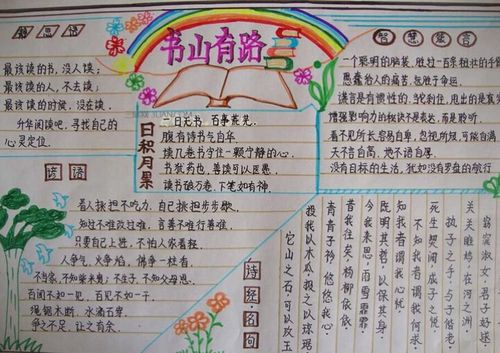 书山有路
最该读的书,没人读;
最该读的人,不去读;
最该读的时候,没在读。
升华阅读吧,寻找自己的
心灵定位。
日积月累
一日无书,百事荒芜。
腹有诗书气自华
读几卷书学住一颗宁静的心。
书犹药也,善读可以医愚。
读书破万卷,下笔如有神。
智慧集言
一个聪明的脑袋,胜过一百双
愚蠢给人的痛苦,包胜于命运。
谎言是有惯性的,
增强影响力的秘诀不是表达,而是聆听。
看不见所长容易自卑,包把所短,可能自满
天不言自高,地不语自厚。
没有目标的生活,犹如没有罗盘的航行
谚语
看人挑担不吃力,自己挑担步步歇。
知过不难改过难,言善不难行善难。
只要自己上进,不怕人家看轻。
人争气,火争焰,佛争一柱香。
不当家,不知柴米贵;不生子,不知父母恩。
百闻不如一见,百见不如一干。
绳锯木断,水滴石穿。
争之不足,让之有余。
诗经·名句
窈窕淑女,君子好逑。
关关雎鸠,在河之洲。
执子之手,与子偕老。
死生契阔,成子之悦。
不知我者谓我何求
知我者谓我心忧
既明其哲,以保其身。
今我来思,雨雪霏霏
昔我往矣,杨柳依依
青青子衿,悠悠我心
投我以木瓜,报之以琼琚
它山之石,可以攻玉